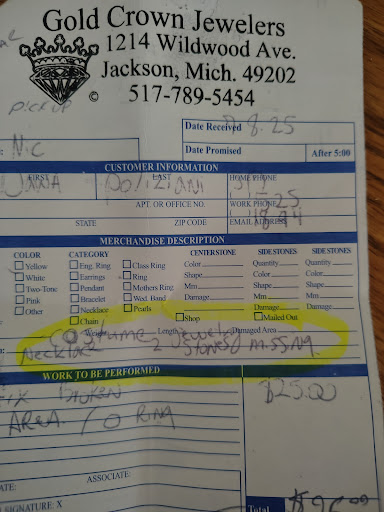 Gold Crown Jewelers
1214 Wildwood Ave.
Jackson, Mich. 49202
517-789-5454
©
pick up
Date Received 8.8.25
N.C
Date Promised After 5:00
CUSTOMER INFORMATION
FIRST LAST HOME PHONE
APT. OR OFFICE NO. WORK PHONE
STATE ZIP CODE EMAIL ADDRESS
MERCHANDISE DESCRIPTION
COLOR CATEGORY CENTERSTONE SIDESTONES SIDESTONES
Yellow Eng. Ring Class Ring Color Quantity Quantity
White Earrings Ring Shape Color Color
Two-Tone Pendant Mothers Ring Mm Shape Shape
Pink Bracelet Wed. Band Damage Mm Mm
Other Necklace Pearls Damage Damage
Chain Shop Mailed Out
Length Damaged Area
Costume Jewelry
Necklace 2 stones missing.
WORK TO BE PERFORMED
Fix Broken $25.00
AREA TO RING
ATE: ASSOCIATE:
SIGNATURE: X
Total